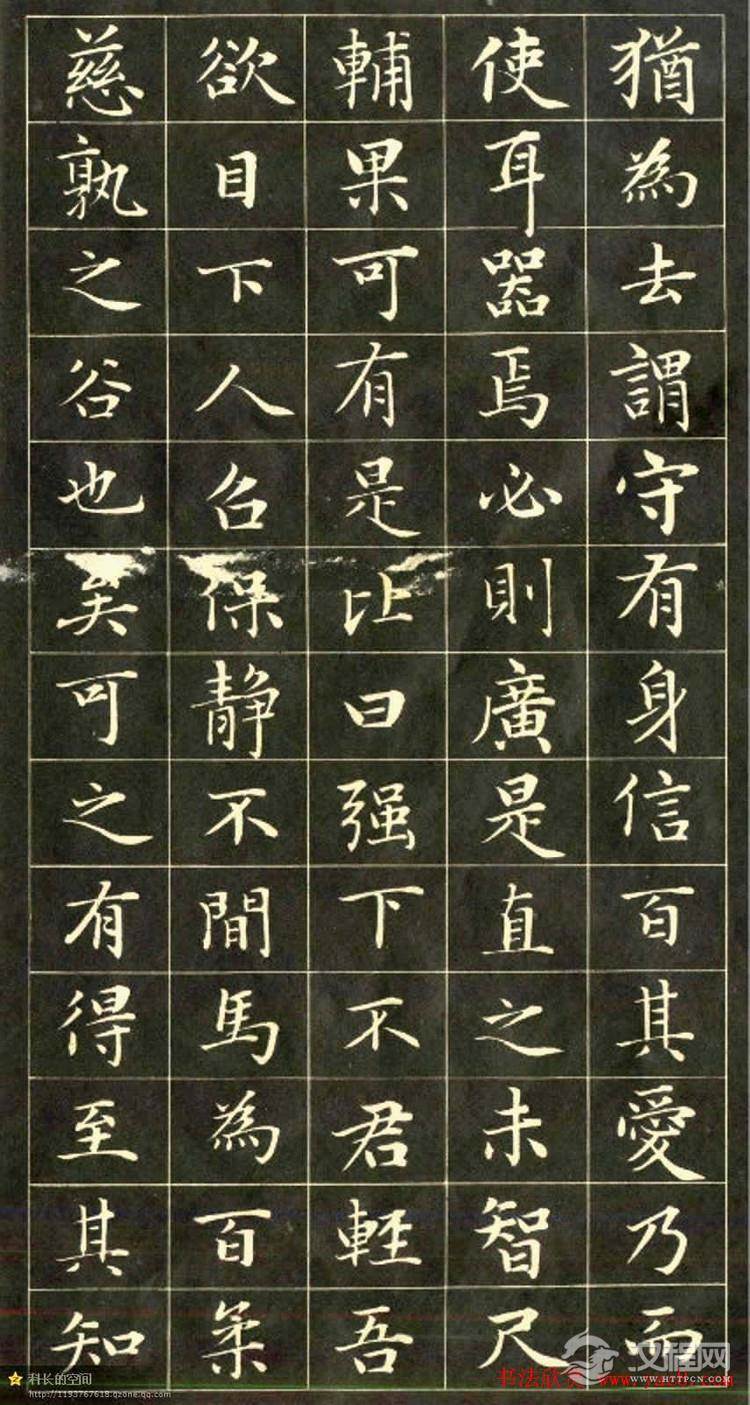 猶為去謂守有身信百其愛乃而
使耳器焉必則廣是直之未智尺
輔果可有是比曰强下不君輕吾
欲目下人召保静不間馬為百柔
慈孰之谷也矣可之有得至其知
科长的空间
http://1193767618.qzone.qq.com
书法欣赏
汉程网
WWW.HTTPCN.COM